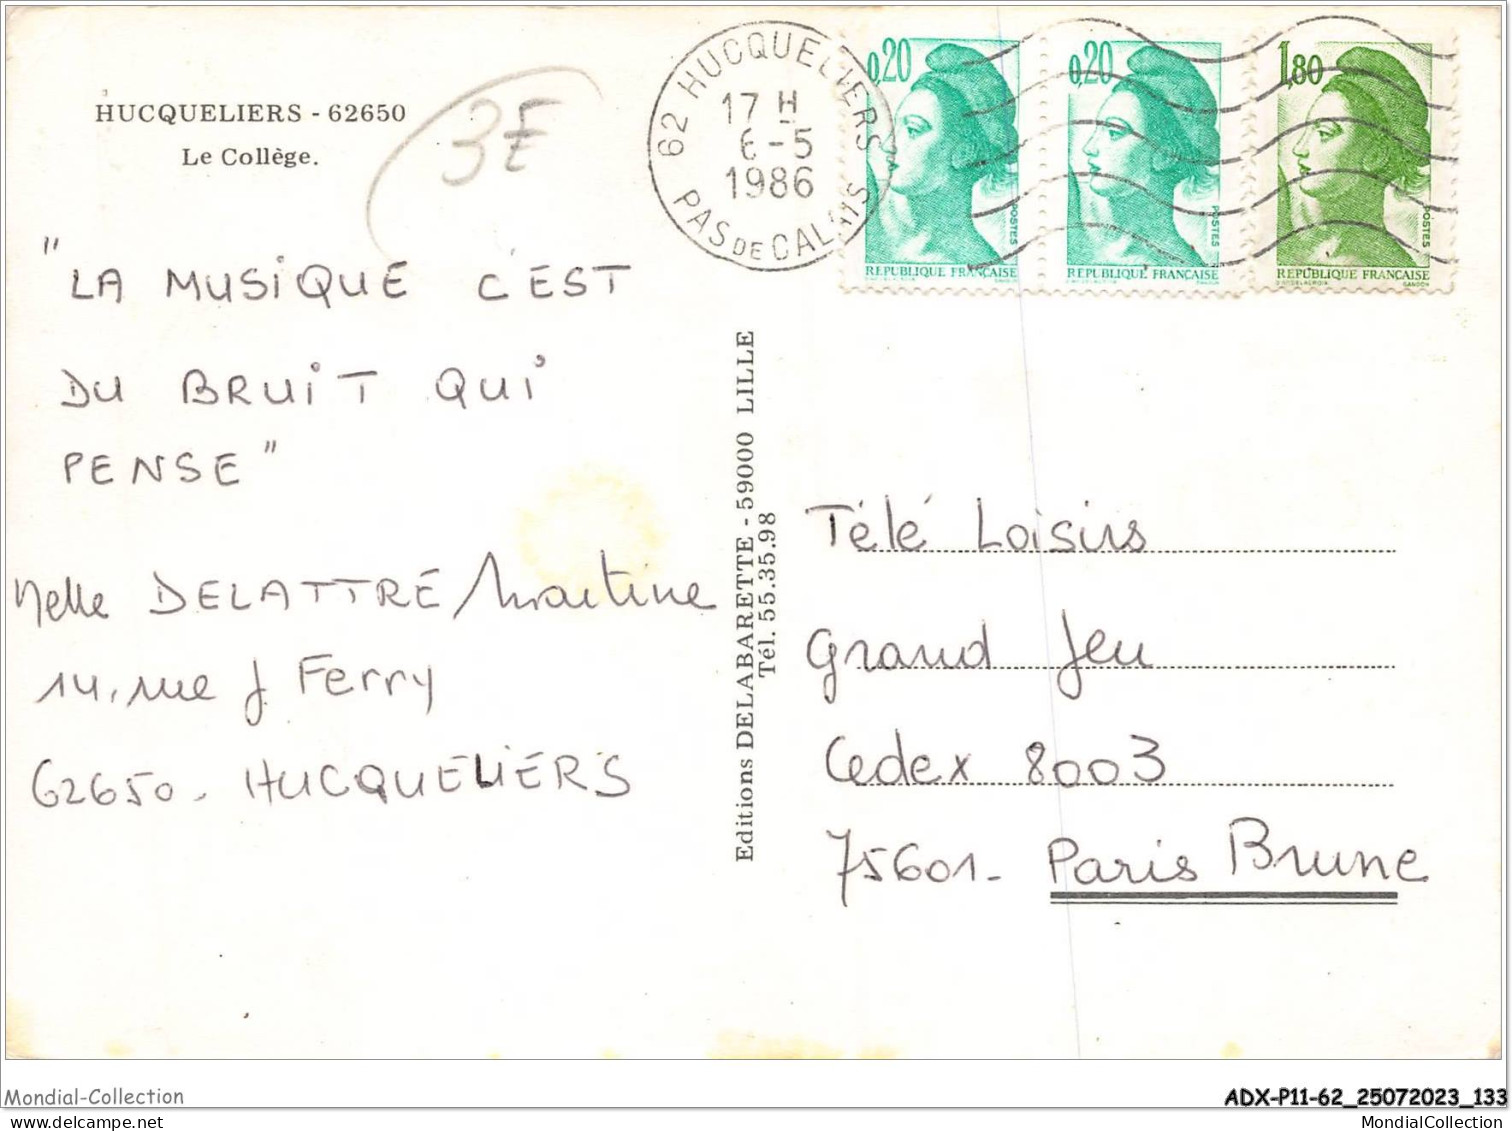 HUCQUELIERS - 62650
Le Collège.
3E
62 HUCQUELIERS
17 H
6-5
1986
PAS DE CALAIS
0,20
POSTES
REPUBLIQUE FRANÇAISE
0,20
POSTES
REPUBLIQUE FRANÇAISE
1,80
POSTES
REPUBLIQUE FRANÇAISE
"LA MUSIQUE C'EST
DU BRUIT QUI
PENSE"
Melle DELATTRE Martine
14, rue J Ferry
62650 - HUCQUELIERS
Editions DELABARETTE - 59000 LILLE
Tél. 55.35.98
Télé Loisirs
Grand Jeu
Cedex 8003
75601 - Paris Brune
Mondial-Collection
ADX-P11-62_25072023_133
MondialCollection.com
MondialCollection